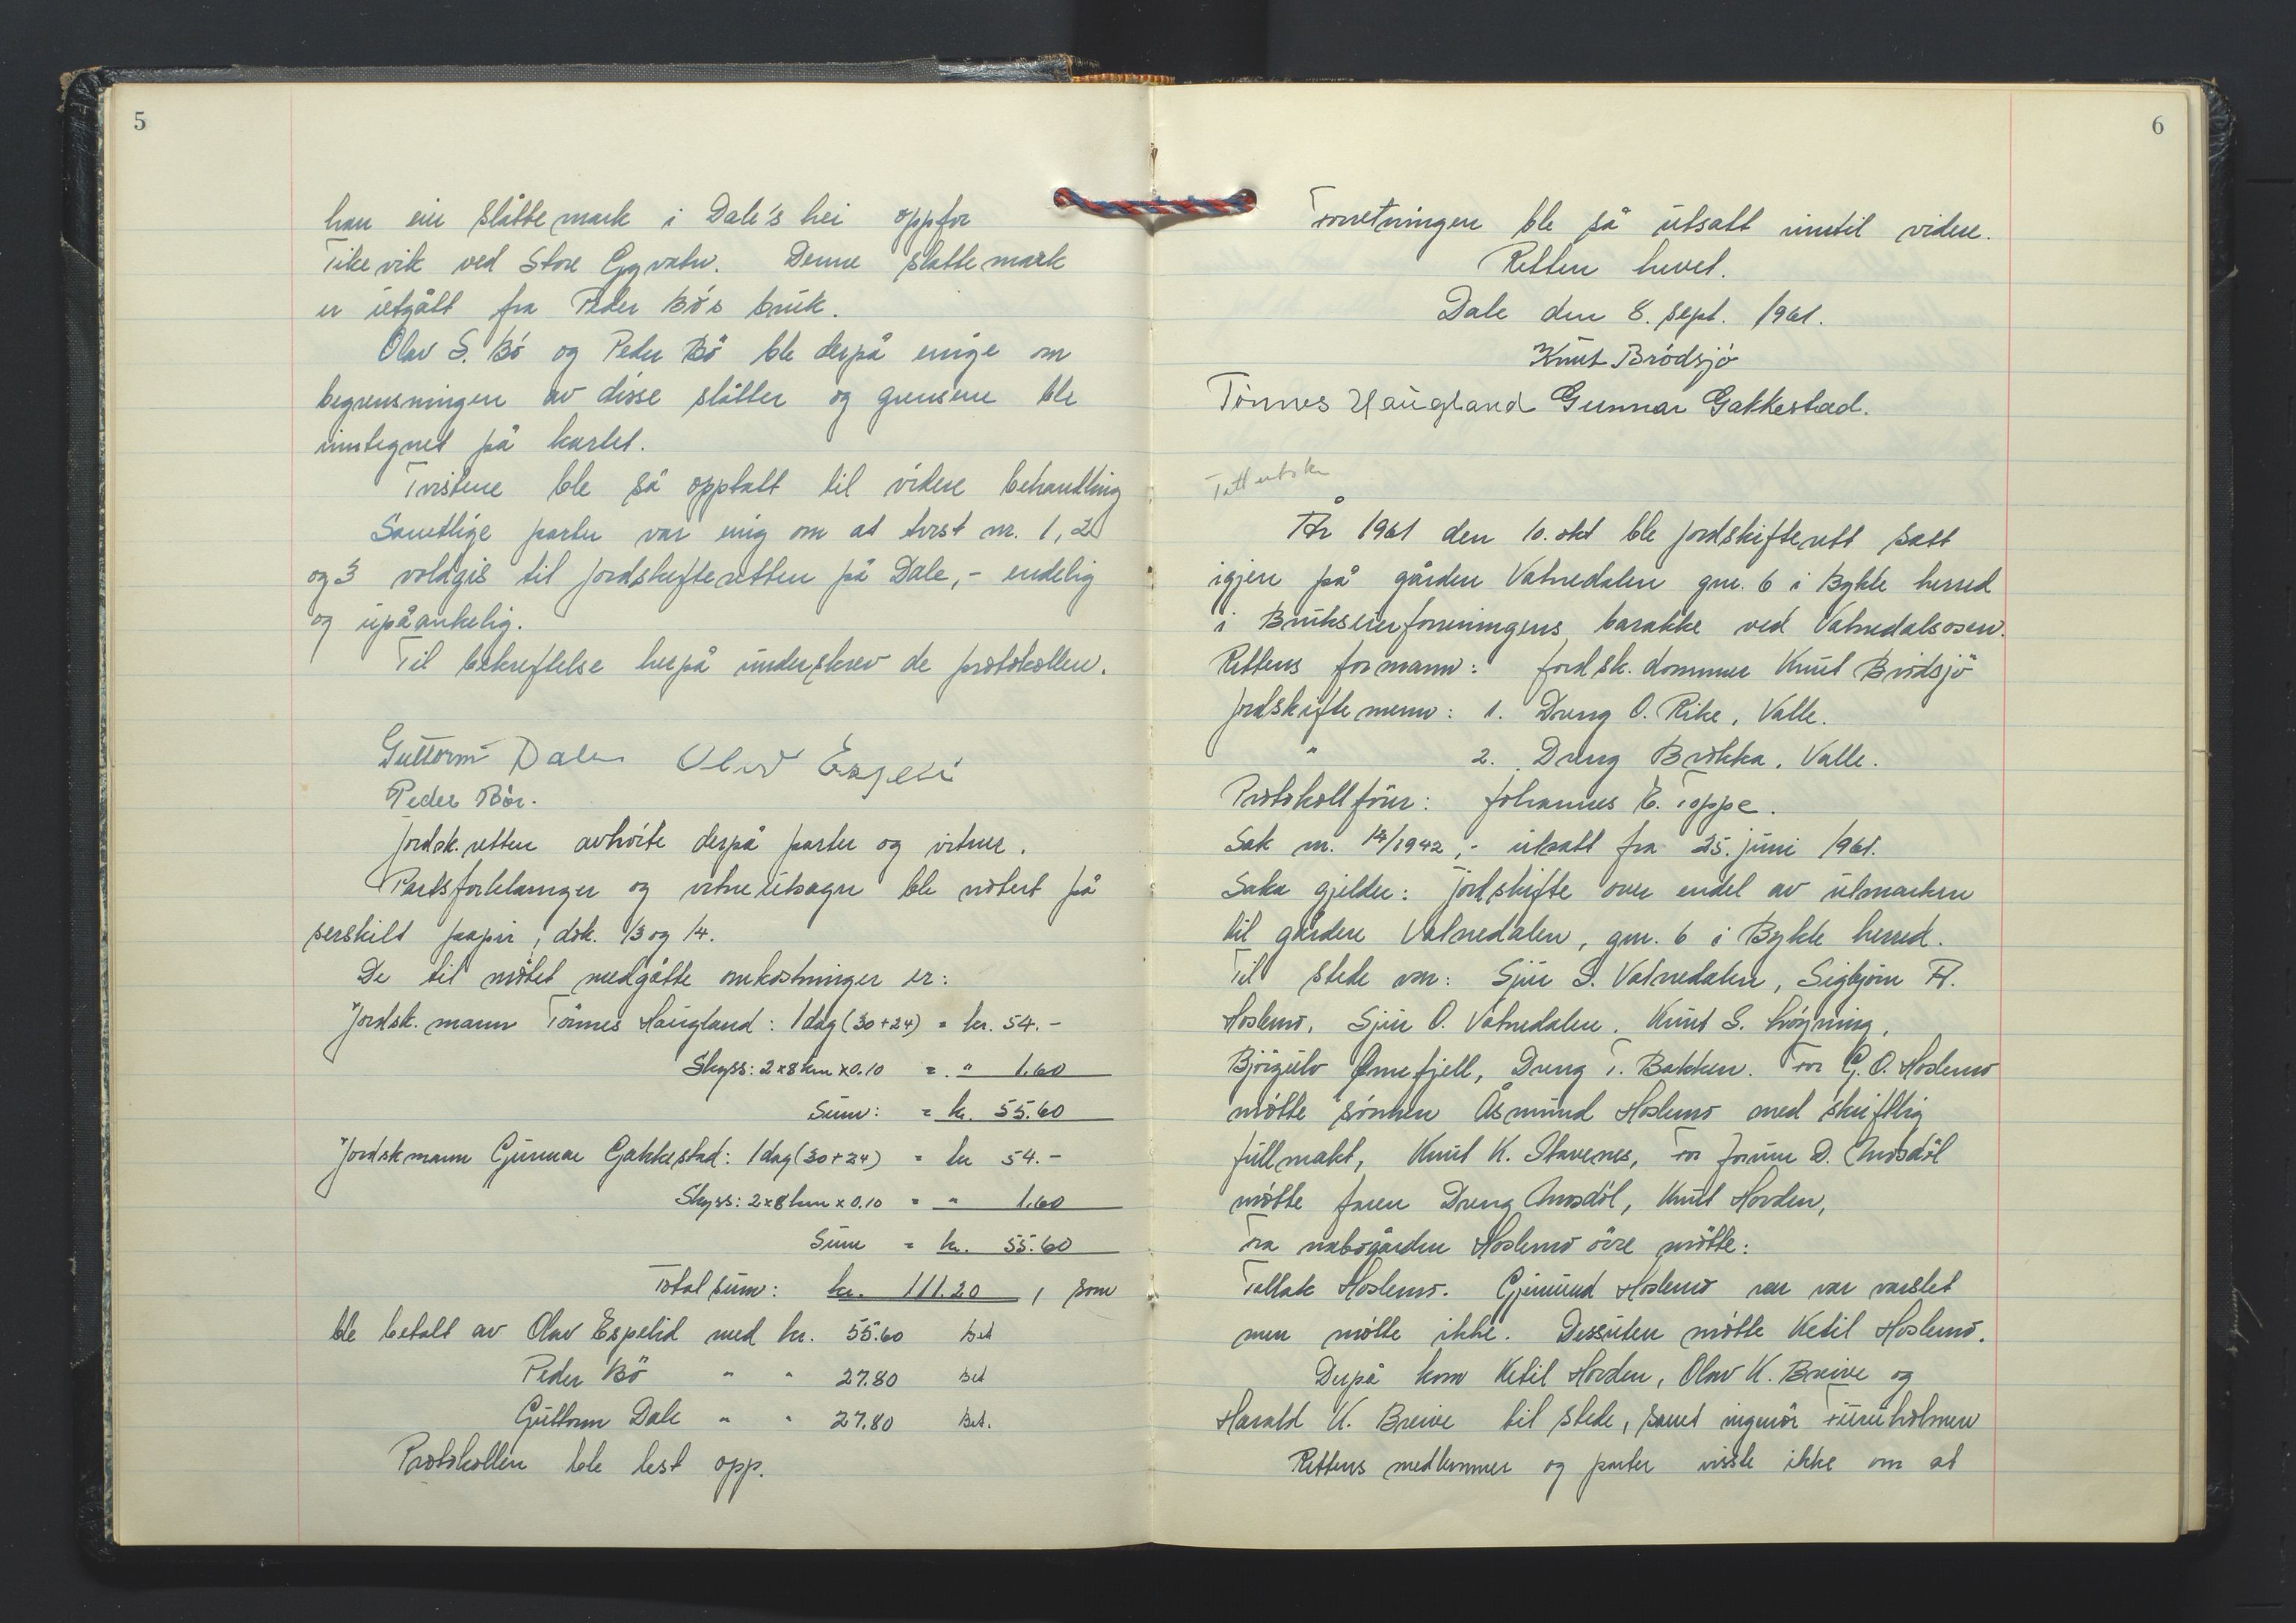 5
han ein slåttemark i Dale's hei oppfor
ved Store Gyvatn. Denne slåttemark
er utgått fra Peder Bö's bruk.
Olav S. Bö og Peder Bö ble derpå enige om
begrensningen av disse slåtter og grensene ble
inntegnet på kartet.
Tvistene ble så opptatt til videre behandling
Samtlige parter var enig om at tvist nr. 1, 2
og 3 voldgis til jordskifteretten på Dale, - endelig
og upåankelig.
Til bekreftelse herpå underskrev de protokollen.
Guttorm Dale Olav
Peder Bö.
Jordsk.retten avhörte derpå parter og vitner.
Partsforklaringer og vitneutsagn ble notert på
serskilt papir, dok. 13 og 14.
De til mötet medgåtte omkostninger er:
Jordsk. mann Tönnes Haugland: 1 dag (30+24) = kr. 54.-
Skyss: 2x8 km x 0.10 = " 1.60
Sum: = kr. 55.60
Jordskmann Gunnar Gakkestad: 1 dag (30+24) = kr 54.-
Skyss: 2x8 km x 0.10 = " 1.60
Sum = kr. 55.60
Total sum: kr. 111.20, som
ble betalt av Olav Espelid med kr. 55.60 Bet
Peder Bö " " 27.80 Bet
Guttorm Dale " " 27.80 Bet.
Protokollen ble lest opp.
6
Forretningen ble så utsatt inntil videre.
Retten hevet.
Dale den 8. sept. 1961.
Knut Brödsjö
Tönnes Haugland Gunnar Gakkestad.
Tatt utskr
År 1961 den 10. okt ble jordskifterett satt
igjen på gården Vatnedalen gnr. 6 i Bykle herred
i Brukseierforeningens barakke ved Vatnedalsosen.
Rettens formann: Jordsk. dommer Knut Brödsjö
Jordskiftemenn: 1. Dreng O. Rike, Valle.
" 2. Dreng Brokka, Valle.
Protokollförer: Johannes E. Toppe.
Sak nr. 12/1942, - utsatt fra 25. juni 1961.
Saka gjelder: Jordskifte over endel av utmarken
til gården Vatnedalen, gnr. 6 i Bykle herred.
Til stede var: Sjur S. Vatnedalen, Sigbjörn A.
Hoslemo, Sjur O. Vatnedalen, Knut S.
Björgulv Ørnefjell, Dreng T. Bakken. For G. O. Hoslemo
mötte sönnen Åsmund Hoslemo med skriftlig
fullmakt, Knut K. Stavenes, For Jorunn D. Mosdöl
mötte faren Dreng Mosdöl, Knut Hovden,
Fra nabogården Hoslemo övre mötte:
Tallak Hoslemo. Gjermund Hoslemo var var varslet
men mötte ikke. Dessuten mötte Ketil Hoslemo.
Derpå kom Ketil Hovden, Olav K. Breive og
Harald K. Breive til stede, samt ingeniör Furuholmen
Rettens medlemmer og parter visste ikke om at